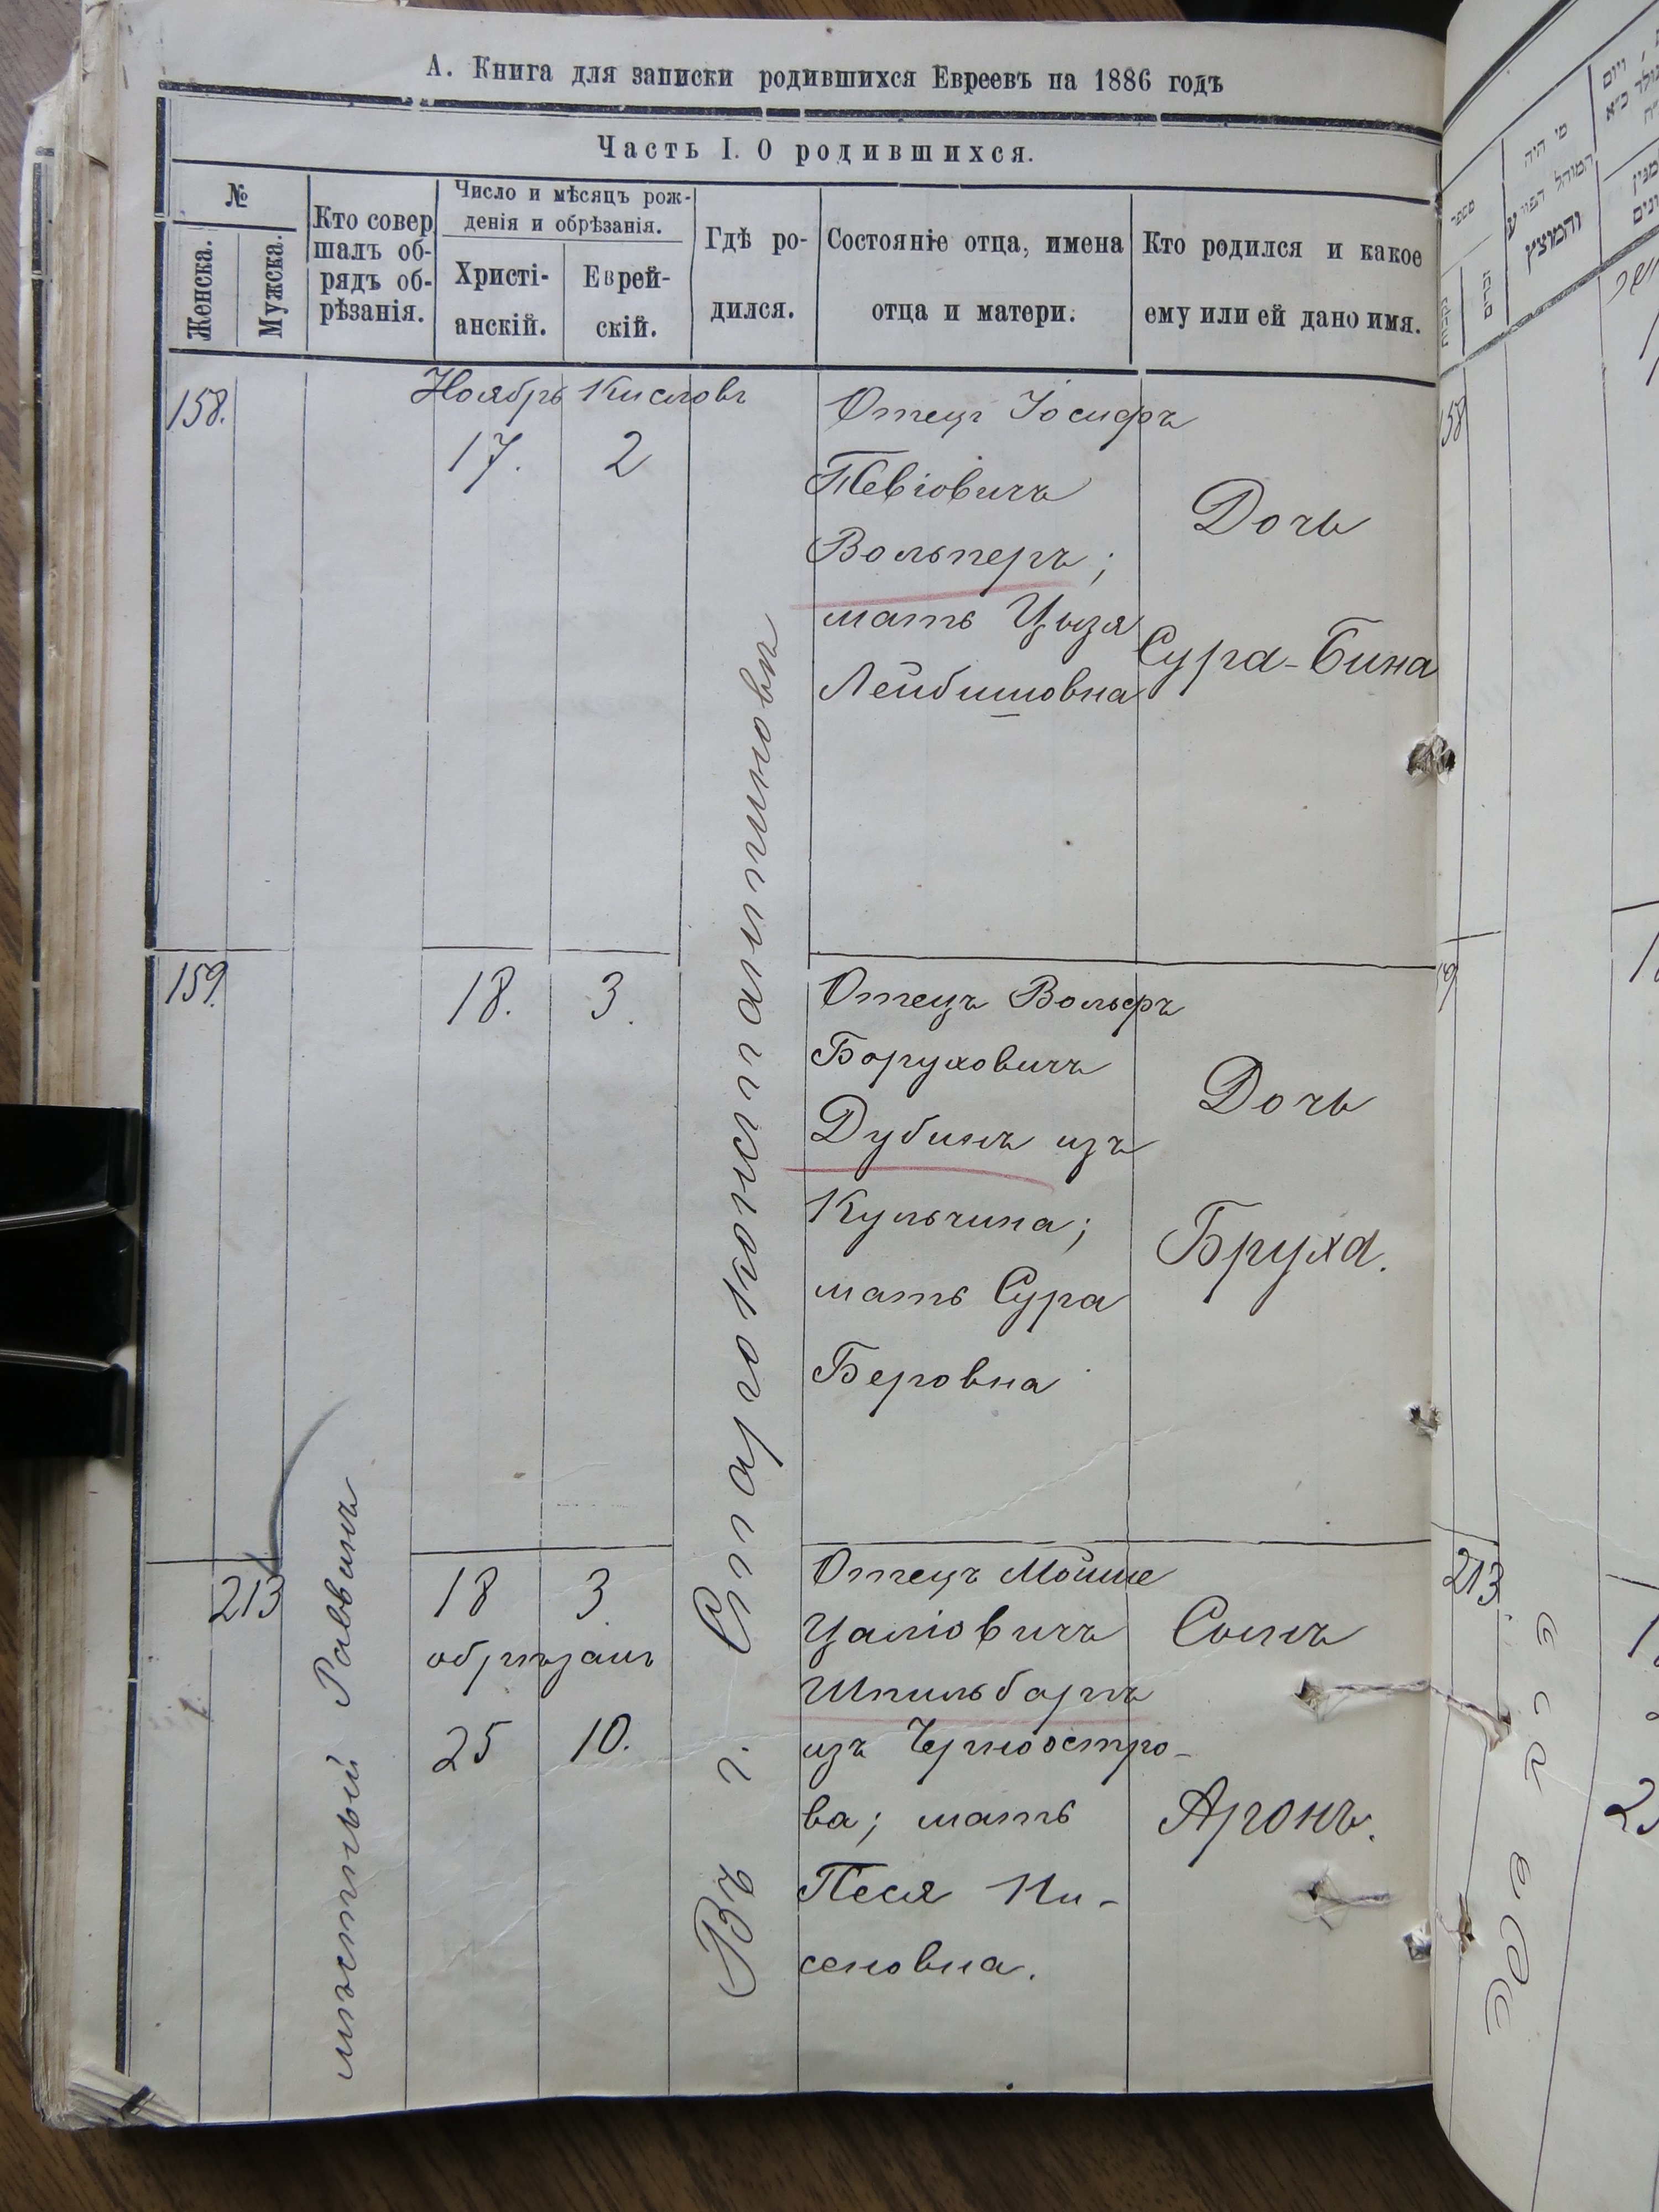 А. Книга для записки родившихся Евреевъ на 1886 годъ
Часть I. О родившихся.
№
Женска.
Мужска.
Кто совер
шалъ об-
рядъ об-
рѣзанія.
Число и мѣсяцъ рож-
денія и обрѣзанія.
Христі-
анскій.
Еврей-
скій.
Гдѣ ро-
дился.
Состояніе отца, имена
отца и матери.
Кто родился и какое
ему или ей дано имя.
158.
Ноябрь Кислевъ
17. 2
Отецъ Іосифъ
Тевіовичъ
Вольперъ;
мать Цызя
Лейбишовна
Дочь
Сура-Бина
159.
18. 3.
Отецъ Вольфъ
Боруховичъ
Дубинъ изъ
Кульчина;
мать Сура
Беровна
Дочь
Бруха.
213
мѣстный Раввинъ
18 3
обрѣзанъ
25 10.
Въ г. Староконстантиновъ
Отецъ Мойше
Цаліовичъ
Шпильбаргъ
изъ Черноостро-
ва; мать
Песя Ни-
сеновна.
Сынъ
Аронъ.
מי היה
המוהל הפורע
והמוצץ
מספר
נקבות
זכרים
158
159
213.